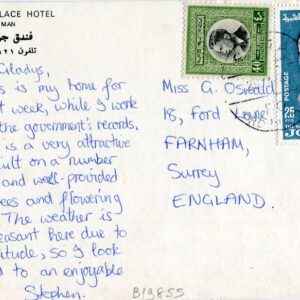 LACE HOTEL
MAN
فندق ج
تلفون ١٢١
Gladys,
s is my home for
t week, while I work
the government's records.
is a very attractive
uilt on a number
and well-provided
ees and flowering
The weather is
easant here due to
titude, so I look
d to an enjoyable
Stephen.
Miss G. Oswald
18, Ford Lane,
FARNHAM,
Surrey
ENGLAND.
40
POSTAGE
25
B19855